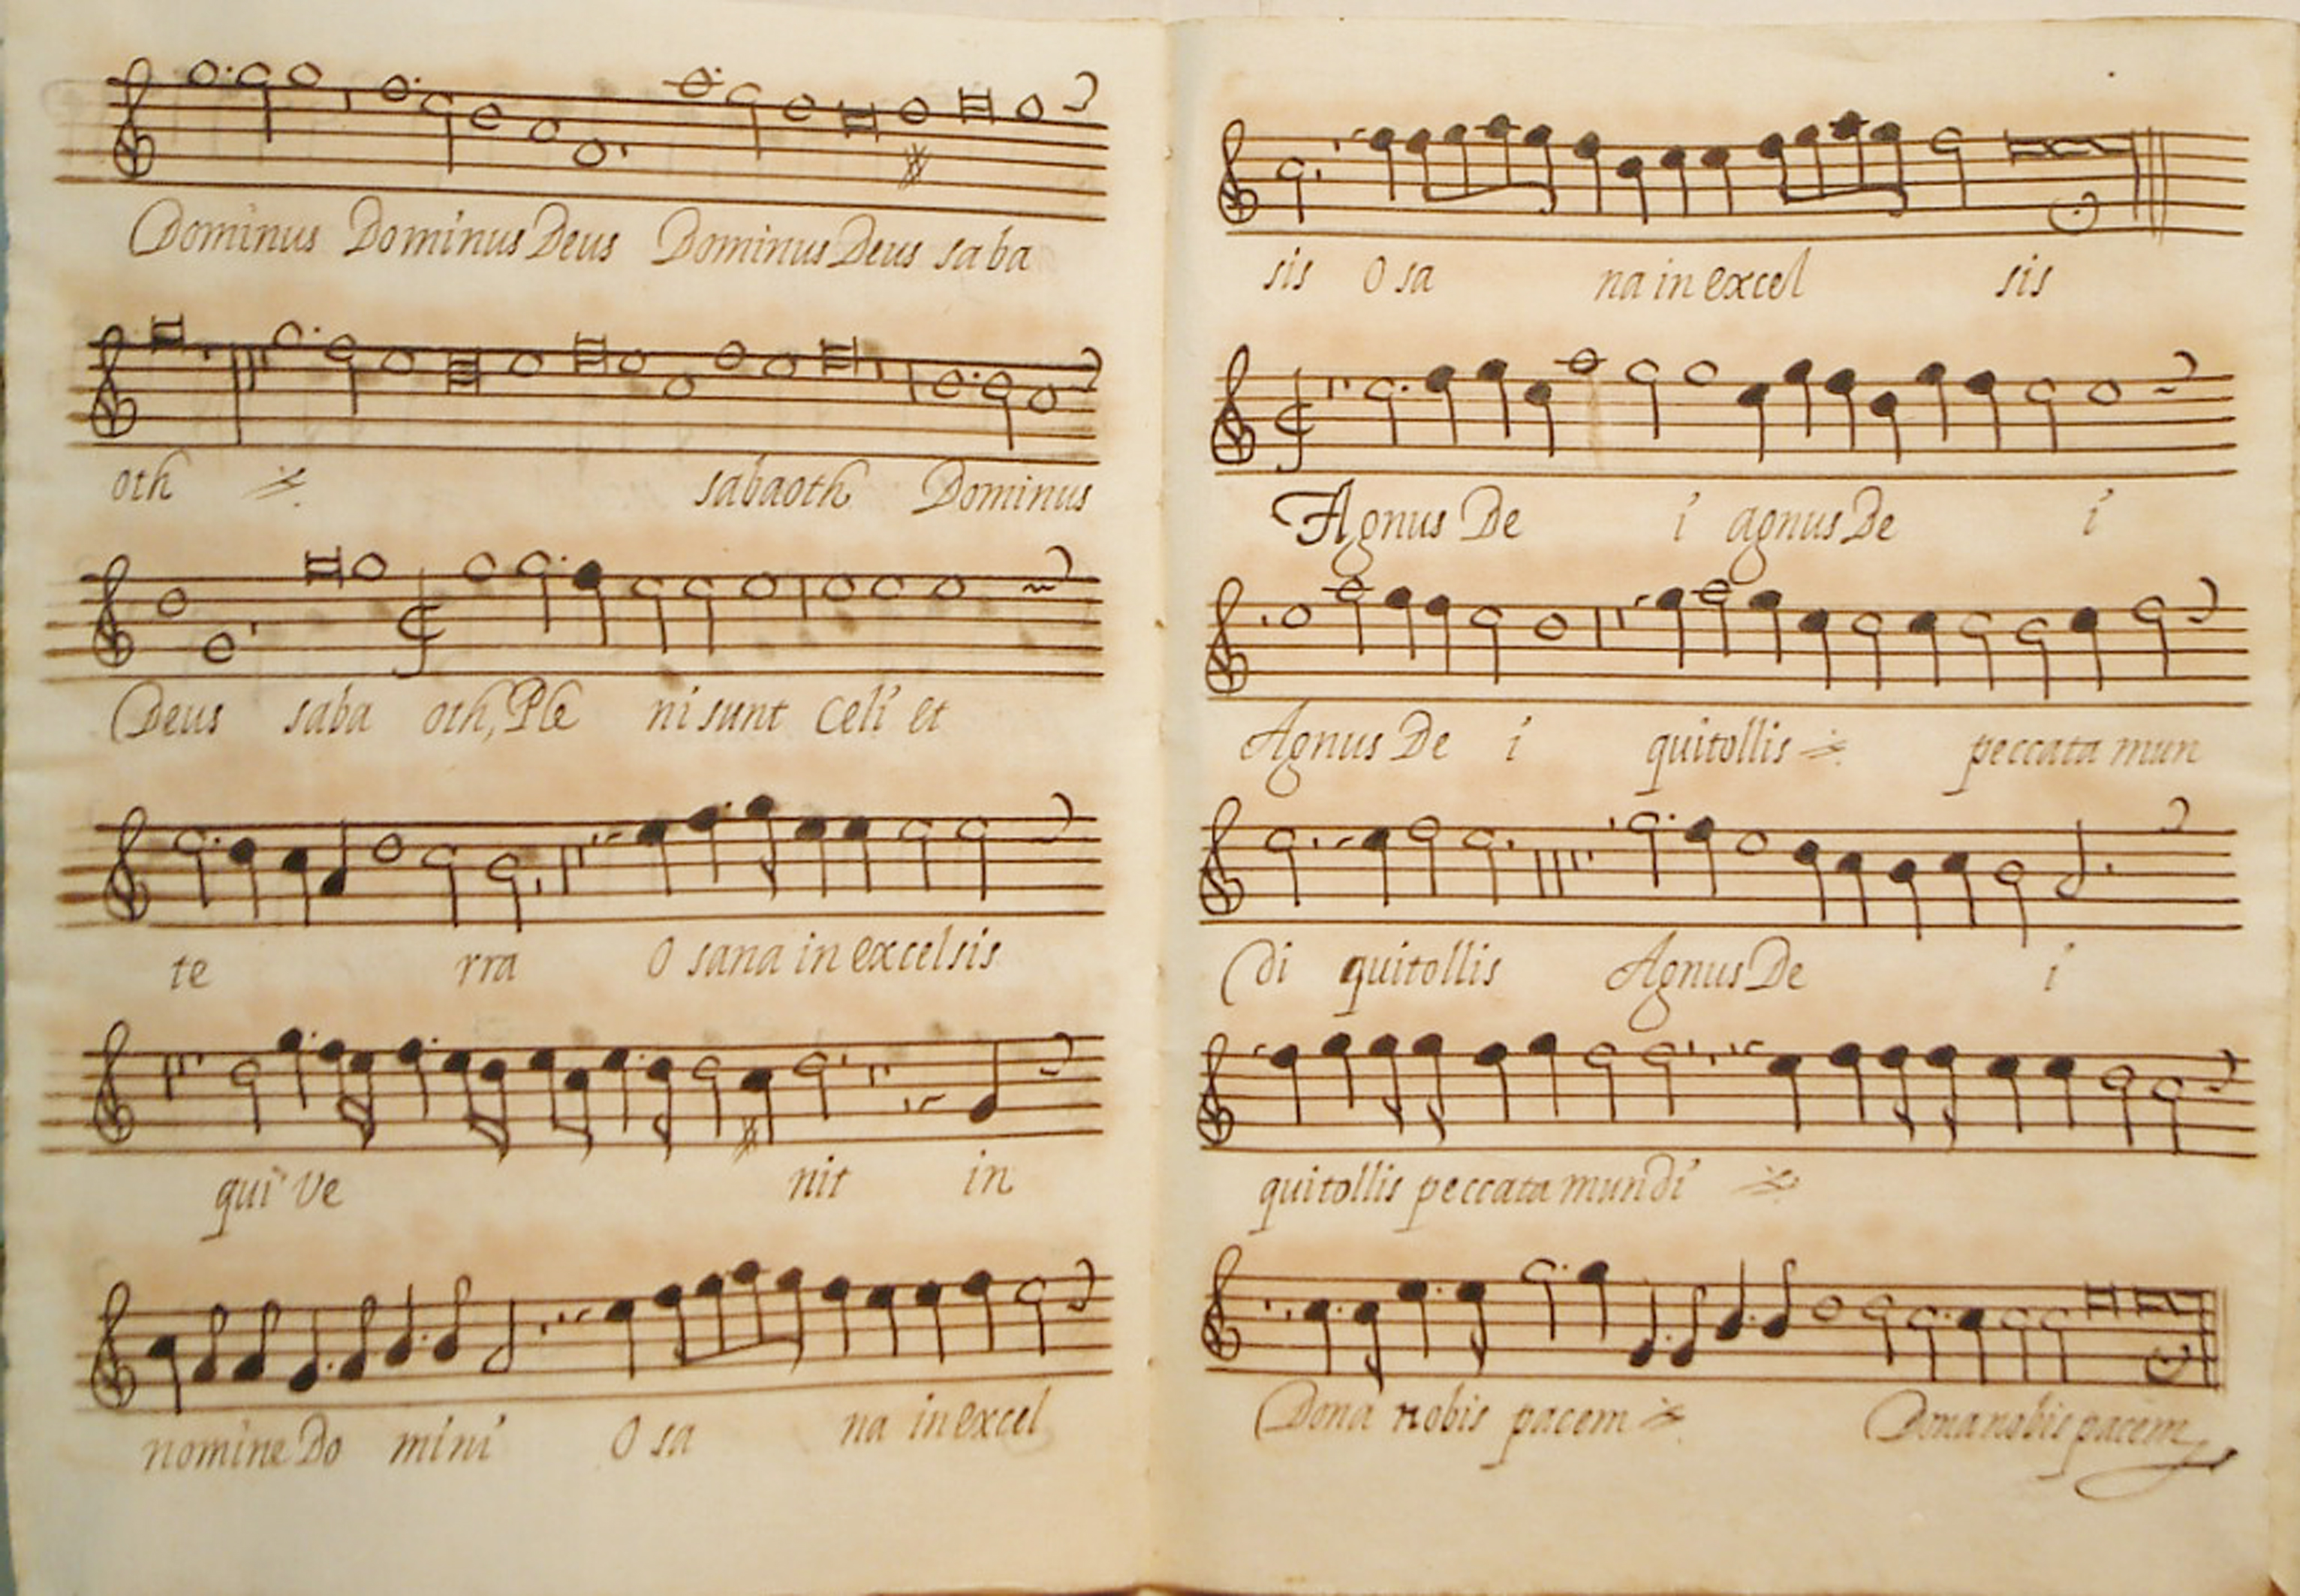 Dominus Dominus Deus Dominus Deus saba
oth sabaoth Dominus
Deus saba oth, Ple ni sunt Celi et
te rra O sana in excelsis
qui ve nit in
nomine Do mini O sa na in excel
sis O sa na in excel sis
Agnus De i agnus De i
Agnus De i qui tollis peccata mun
di qui tollis Agnus De i
qui tollis peccata mundi
Dona nobis pacem Dona nobis pacem